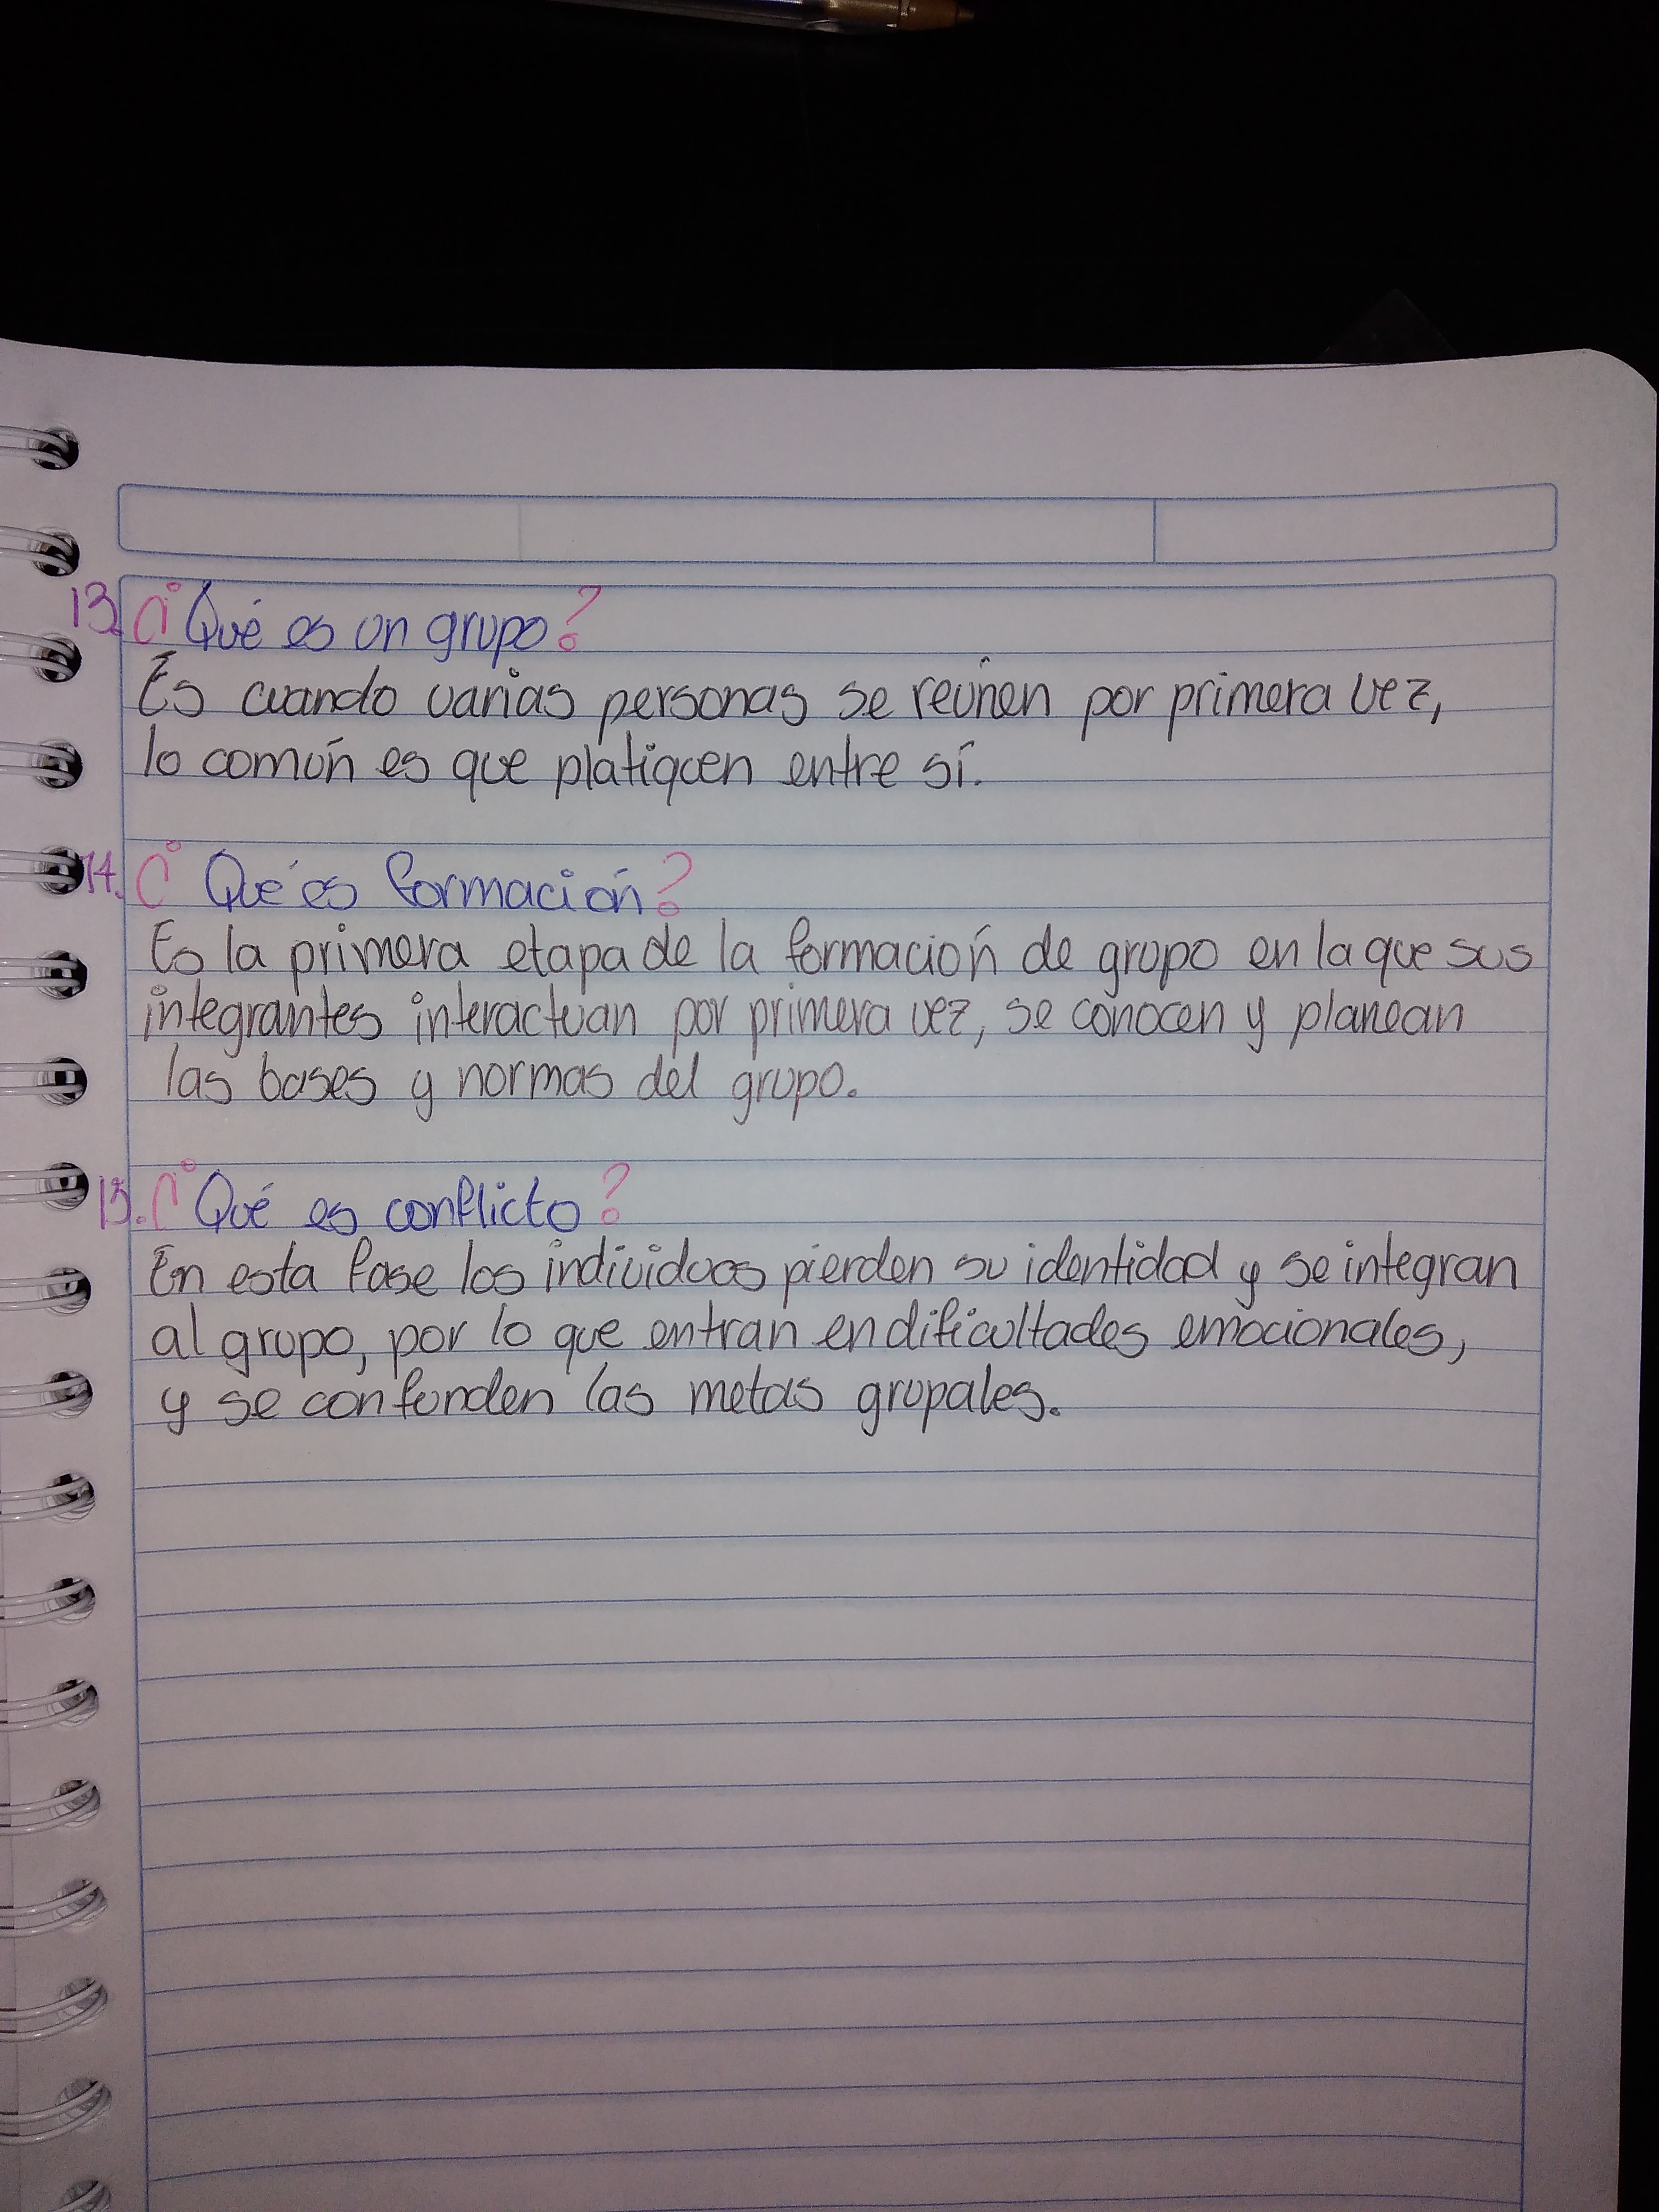 13. ¿Qué es un grupo?
Es cuando varias personas se reúnen por primera vez,
lo común es que platiquen entre sí.
14. ¿Qué es formación?
Es la primera etapa de la formación de grupo en la que sus
integrantes interactuan por primera vez, se conocen y planean
las bases y normas del grupo.
15. ¿Qué es conflicto?
En esta fase los individuos pierden su identidad y se integran
al grupo, por lo que entran en dificultades emocionales,
y se confunden las metas grupales.